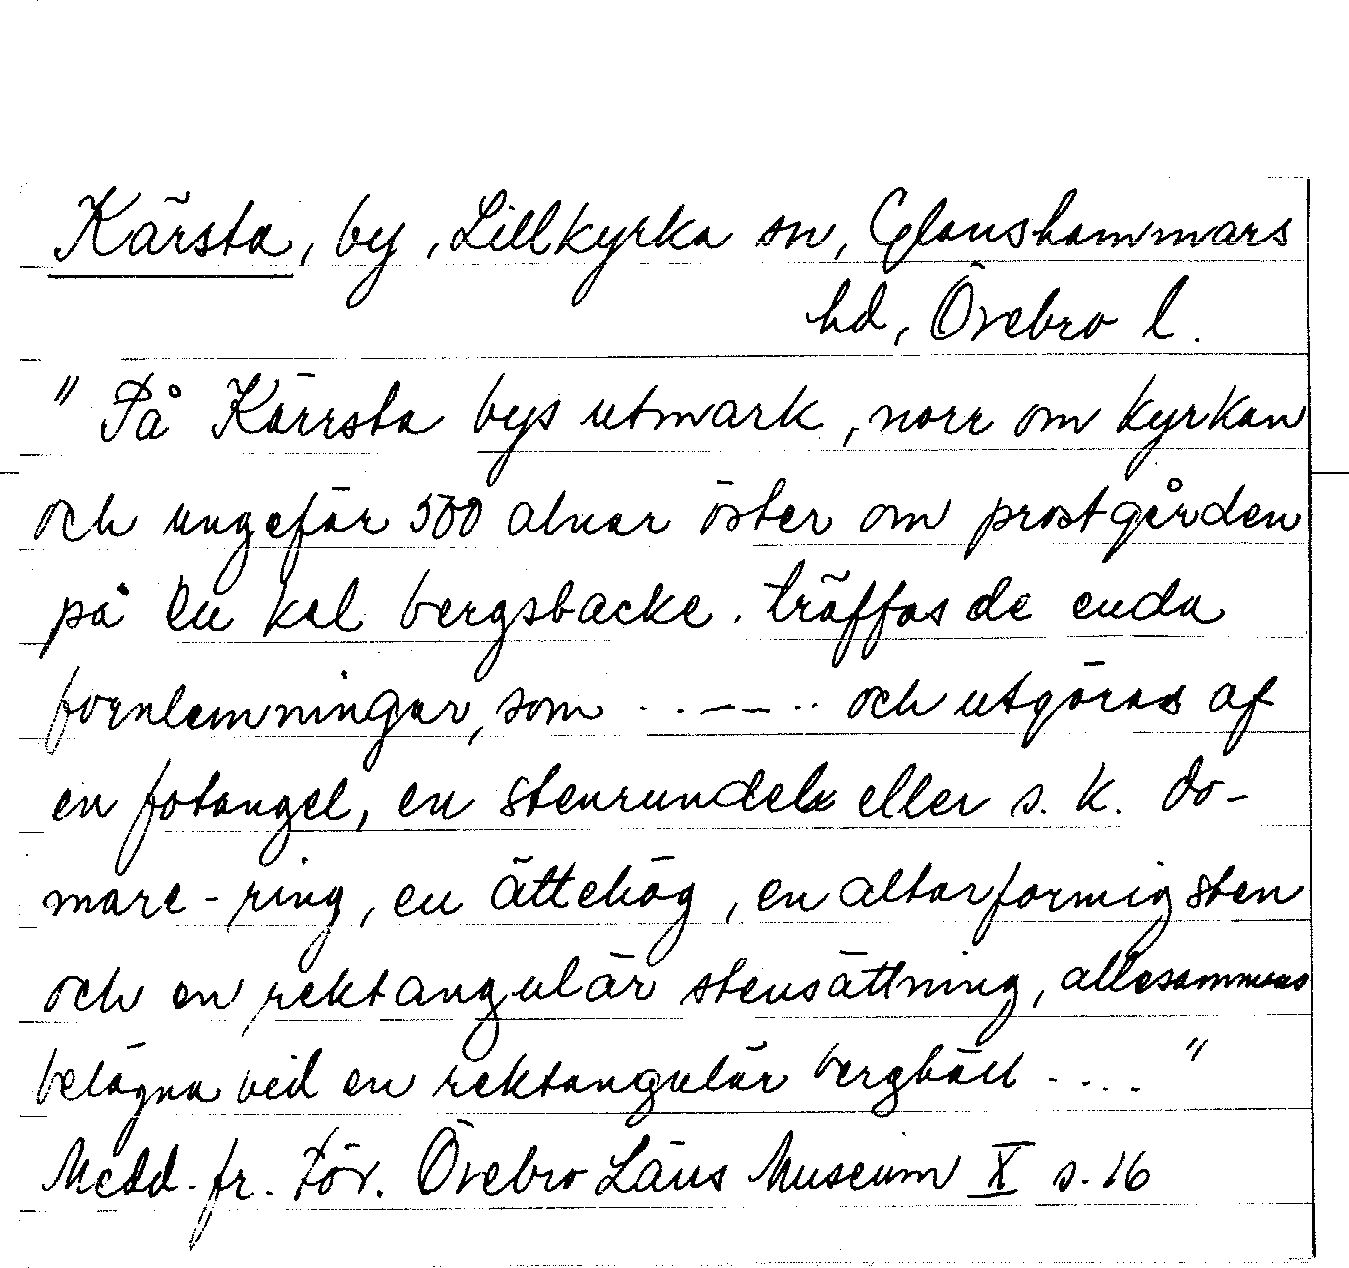 Kärsta, by, Lillkyrka sn, Glanshammars
hd, Örebro l.
" På Kärrsta bys utmark, norr om kyrkan
och ungefär 500 alnar öster om prostgården
på en kal bergsbacke. träffas de enda
fornlemningar, som . . – – – . . och utgöras af
en fotangel, en stenrundel eller s. k. do-
mare-ring, en ättehög, en altarformig sten
och en rektangulär stensättning, allesammans
belägna vid en rektangulär berghäll . . . . "
Medd. fr. För. Örebro Läns Museum X s. 16